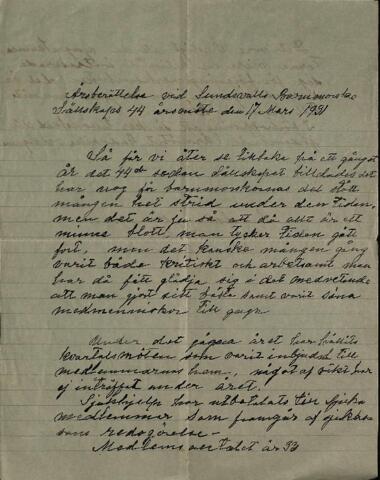 Årsberättelse vid Sundsvalls Barnmorske
Sällskaps 44 årsmöte den 17 Mars 1931
Så får vi åter se tillbaka på ett gånget
år det 44de sedan Sällskapet bilddades det
har nog för barnmorskornas del stått
mången het strid under den tiden,
men det är ju så att då allt är ett
minne blott, man tycker tiden gått
fort, men det kanske mången gång
varit både kritiskt och arbetsamt man
har då fått glädja sig i det medvetande
att man gjort sitt bästa samt varit sina
medmenniskor till gagn.
Under det gågna året har hållits
kvartalsmöten som varit inbjuden till
medlemmarnas hem, något af vikt har
ej inträffat under året.
Sjukhjelp har utbetalats till sjuka
medlemmar som framgår af sjukkas
sans redogörelse –
Medlems antalet är 33